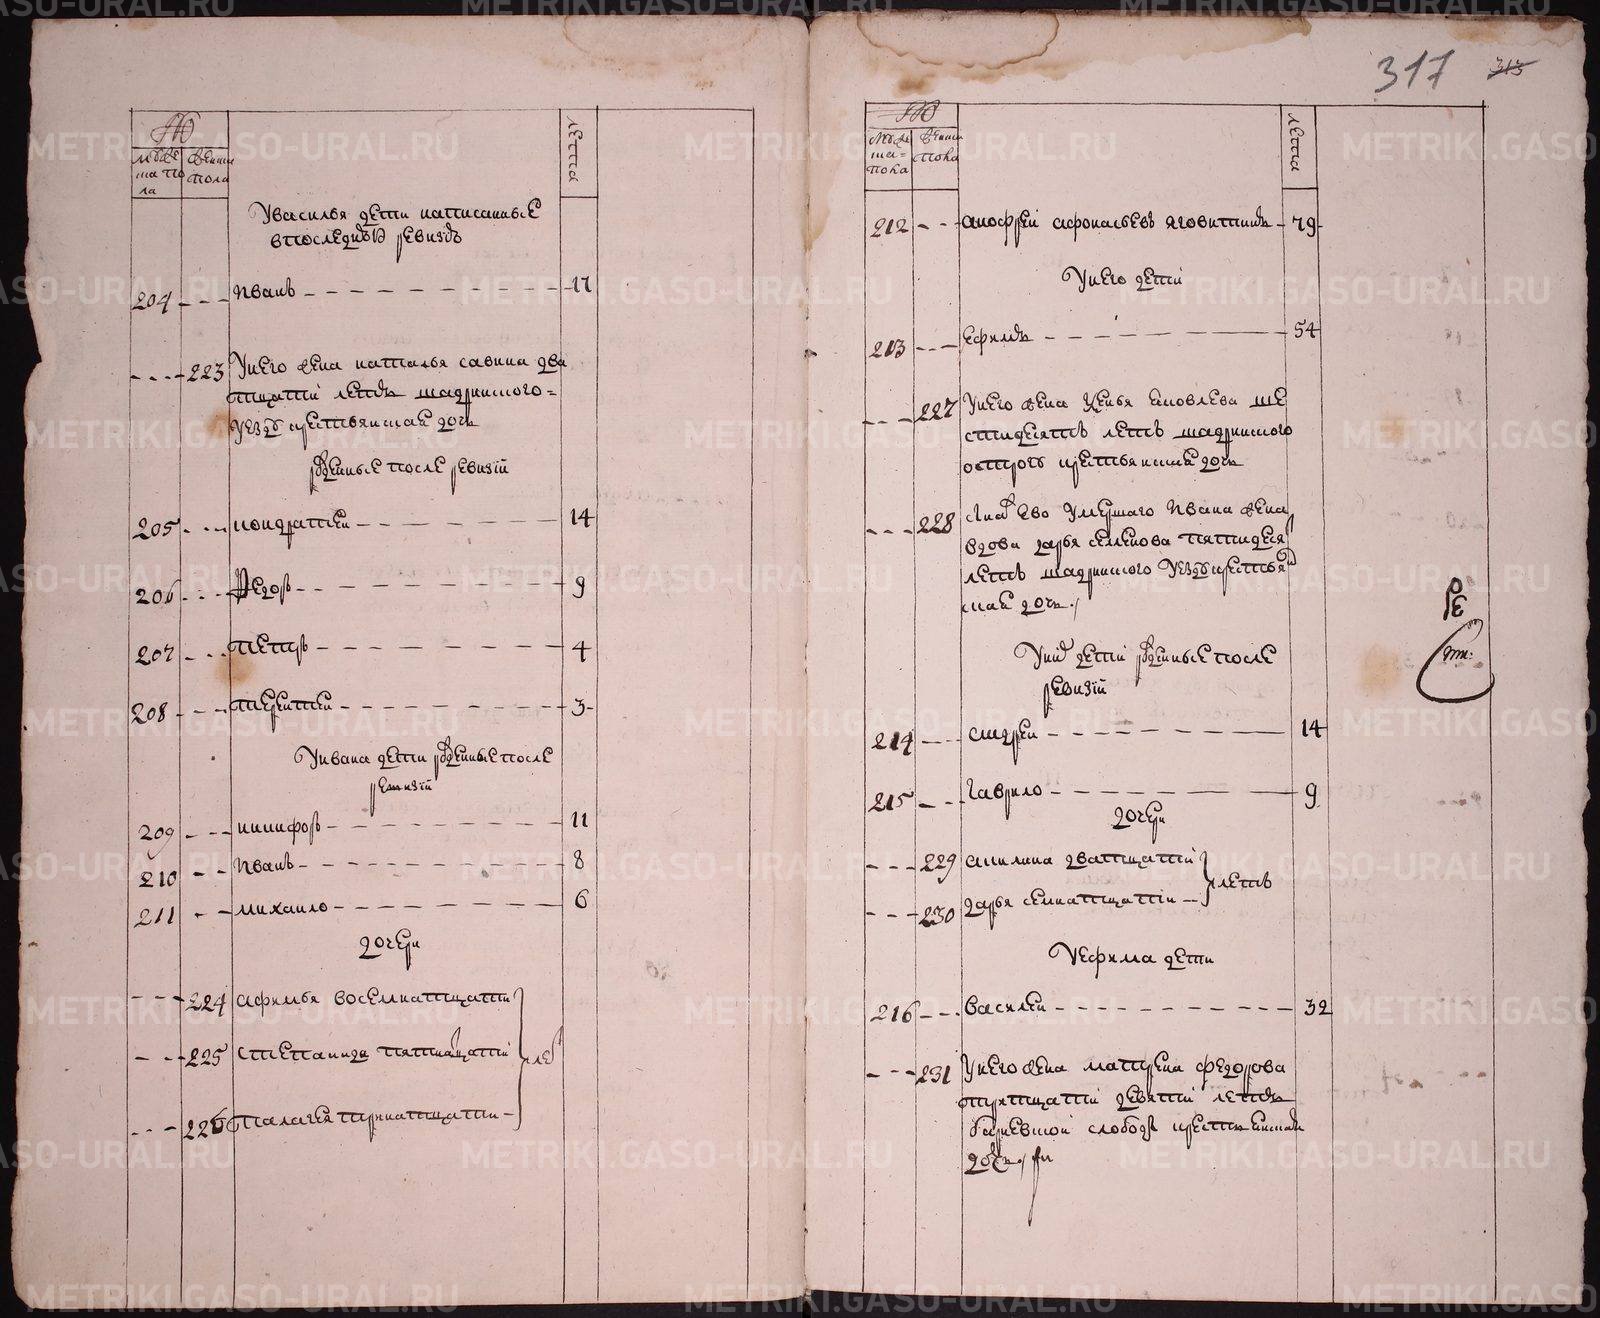 №
мужеска пола
женска пола
лета
У василья дети написанные
в последнеи ревизъ
204 - - - иванъ - - - 17
- - - 223 У него жена наталья савина два
тцати летъ шадринского
уезду крестьянская дочь
рожденные после ревизии
205 - - - кондратеи - - - 14
206 - - - Федоръ - - - 9
207 - - - петръ - - - 4
208 - - - терентеи - - - 3
У ивана дети рожденные после
ревизии
209 - - - никифоръ - - - 11
210 - - - иванъ - - - 8
211 - - - михаило - - - 6
дочери
- - - 224 афимья восемнатцати
- - - 225 степанида пятнатцати } лет
- - - 226 палагея тринатцати
317 313
№
мужеска пола
женска пола
лета
212 - - - анофреи афонасьевъ яговитинъ - 79
У него дети
213 - - - ефимъ - - - 54
- - - 227 У него жена ксенья яковлева ше
стидесятъ летъ шадринского
острогу крестьянская дочь
- - - 228 ево умершаго ивана жена
вдова дарья семенова пятидеся
летъ шадринского уезду крестья
ская дочь
У ней дети рожденные после
ревизии
214 - - - андреи - - - 14
215 - - - гаврило - - - 9
дочери
- - - 229 акилина дватцати } летъ
- - - 230 дарья семнатцати
У ефима дети
216 - - - василеи - - - 32
- - - 231 У него жена матрена федорова
тритцати девяти летъ
барневскои слободы крестьянская
дочь